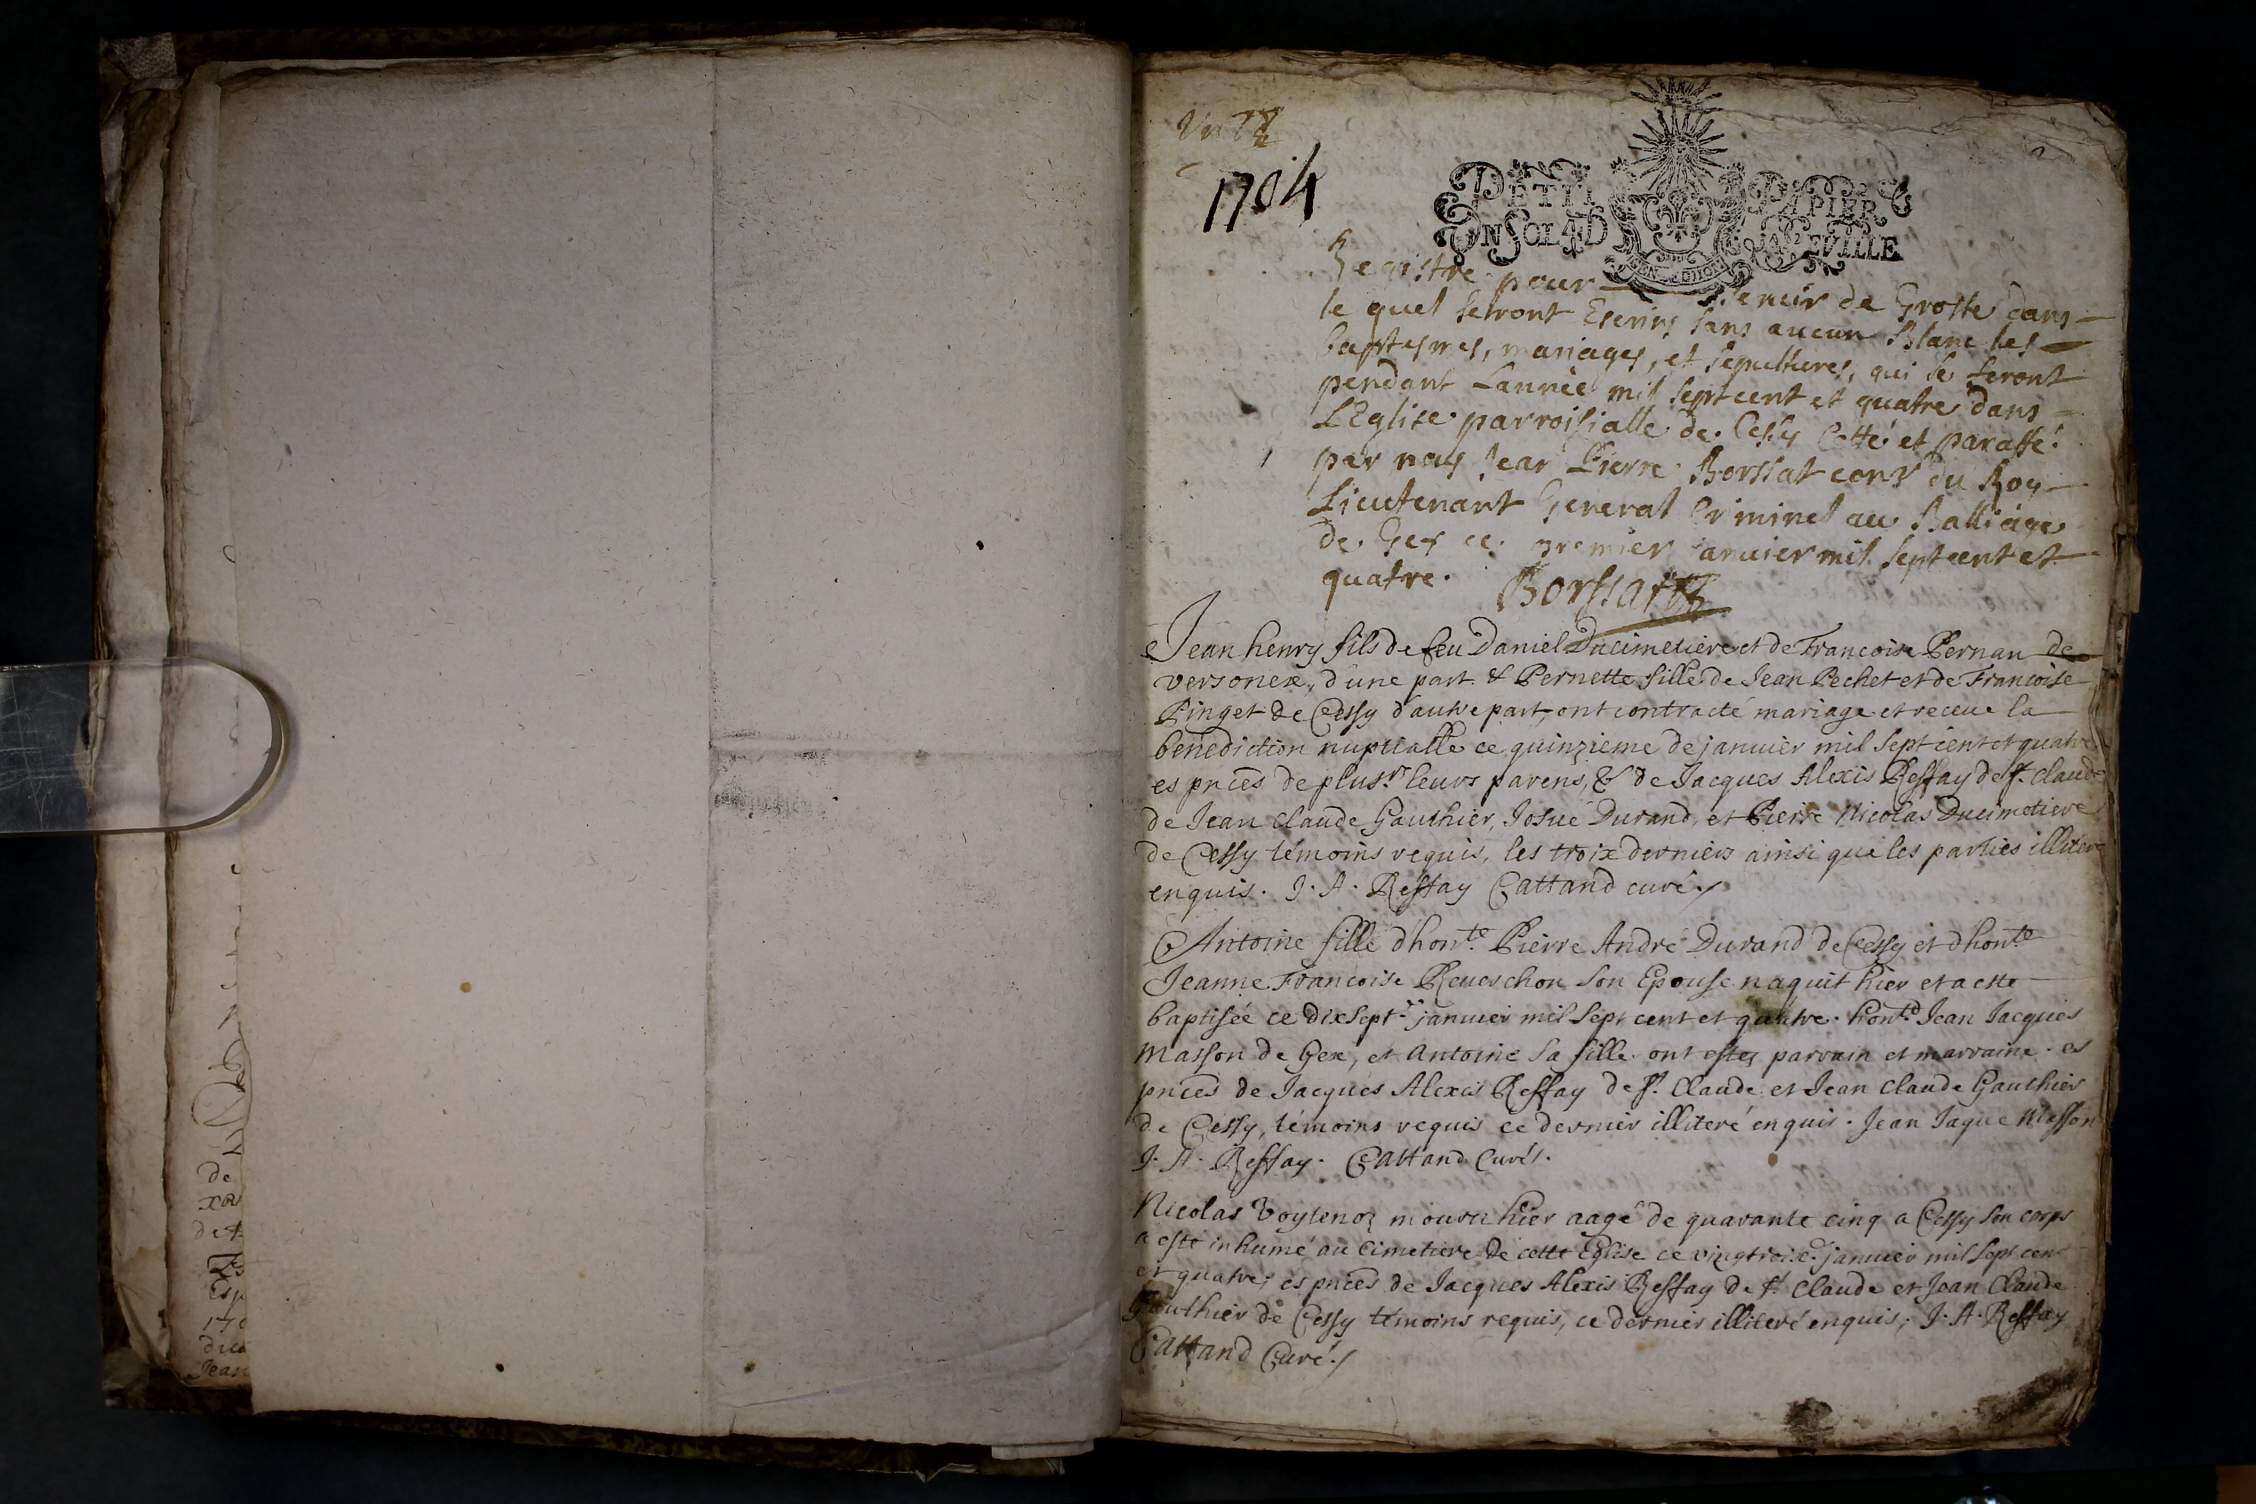 de
Jean
1704
PETIT PAPIER
UN SOL 4 D LA FEVILLE
Registre pour servir de Grosse dans
le quel seront Escrins sans aucun Blanc les
baptesmes, mariages, et sepultures, qui se feront
pendant Lannée mil sept cent et quatre dans
LEglise parroisialle de Cessy Cotté et paraffé
par nous Jean Pierre Borssat consr du Roy
Lieutenant General Criminel au Balliage
de Gex ce premier janvier mil sept cent et
quatre. Borssat
Jean henry fils de feu Daniel Ducimetiere et de Francoise Pernau de
versonex, d'une part & Pernette fille de Jean Pechet et de Francoise
Pinget de Cessy d'autre part, ont contracté mariage et receue la
benediction nuptialle ce quinzieme de janvier mil sept cent et quatre
es pnces de plusrs leurs parens, & de Jacques Alexis Reffay de st. Claude
de Jean Claude Gauthier, Josué Durand, et Pierre Nicolas Ducimetiere
de Cessy témoins requis, les troix derniers ainsi que les parties illiteré
enquis. J. A. Reffay Cattand curé./
Antoine fille d'honte Pierre André Durand de Cessy et d'honte
Jeanne Francoise Reverchon son Epouse naquit hier et a esté
baptisée ce dixsept.e janvier mil sept cent et quatre. honte Jean Jacques
Masson de Gex, et Antoine sa fille ont estez parrain et marraine. es
pnces de Jacques Alexis Reffay de st. Claude et Jean Claude Gauthier
de Cessy, témoins requis ce dernier illiteré enquis. Jean Jaque Masson
J. A. Reffay. Cattand Curé.
Nicolas Voytenoz mouru hier aagé de quarante cinq a Cessy son corps
a esté inhumé au Cimetiere de cette Eglise ce vingtroixe janvier mil sept cen
et quatre, es pnces de Jacques Alexis Reffay de st. Claude et Jean Claude
Gauthier de Cessy témoins requis, ce dernier illiteré enquis; J. A. Reffay
Cattand Curé./